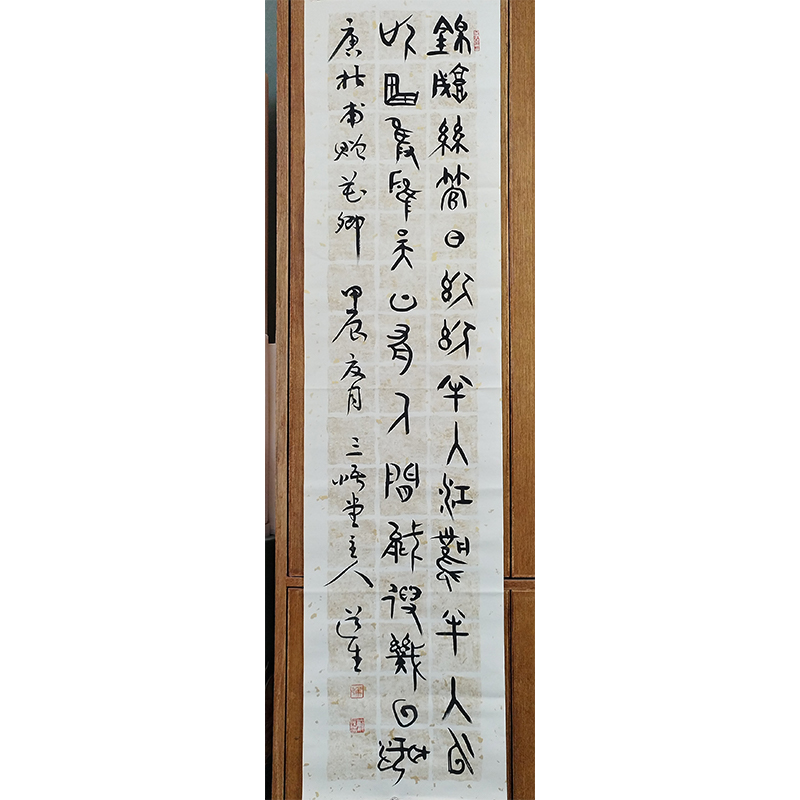 錦城絲管日紛紛半入江風半入雲
此曲只應天上有人間能得幾回聞
唐杜甫贈花卿 甲辰夏月 三悟堂主人 道生